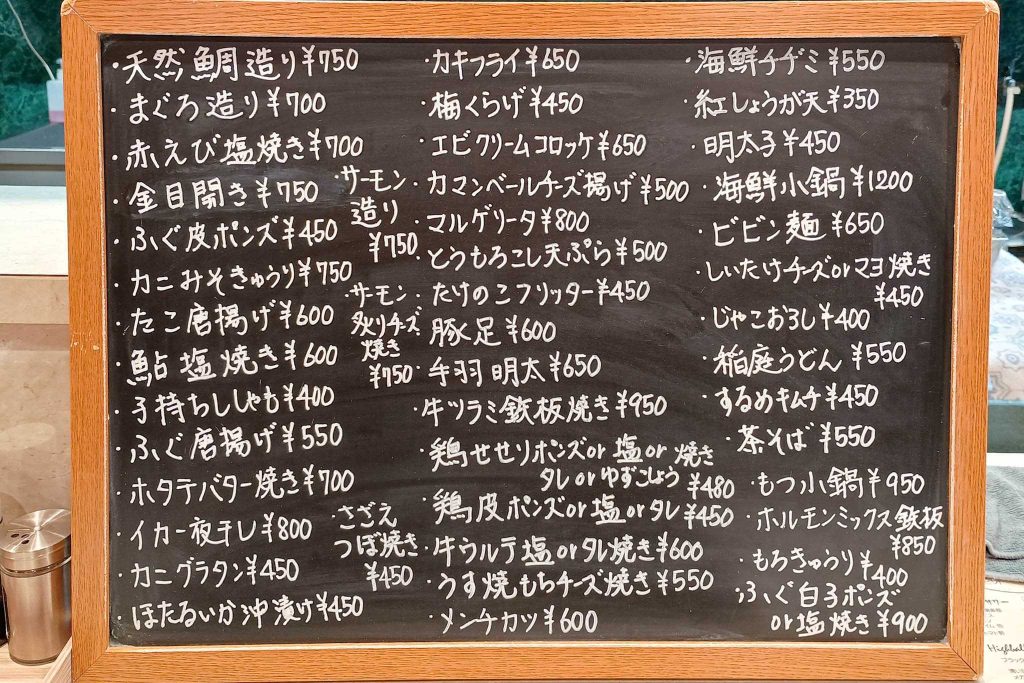 ・天然鯛造り¥750
・まぐろ造り¥700
・赤えび塩焼き¥700
・金目開き¥750
・ふぐ皮ポンズ¥450
・カニみそきゅうり¥750
・たこ唐揚げ¥600
・鮎塩焼き¥600
・子持ちししゃも¥400
・ふぐ唐揚げ¥550
・ホタテバター焼き¥700
・イカ一夜干し¥800
・カニグラタン¥450
・ほたるいか沖漬け¥450
・サーモン
造り
¥750
・サーモン
炙りチーズ
焼き
¥750
・さざえ
つぼ焼き
¥450
・カキフライ¥650
・梅くらげ¥450
・エビクリームコロッケ¥650
・カマンベールチーズ揚げ¥500
・マルゲリータ¥800
・とうもろこし天ぷら¥500
・たけのこフリッター¥450
・豚足¥600
・手羽明太¥650
・牛ツラミ鉄板焼き¥950
・鶏せせりポンズor塩or焼き
タレorゆずこしょう ¥480
・鶏皮ポンズor塩orタレ¥450
・牛ウルテ塩orタレ焼き¥600
・うす焼もちチーズ焼き¥550
・メンチカツ¥600
・海鮮チヂミ¥550
・紅しょうが天¥350
・明太子¥450
・海鮮小鍋¥1200
・ビビン麺¥650
・しいたけチーズorマヨ焼き
¥450
・じゃこおろし¥400
・稲庭うどん¥550
・するめキムチ¥450
・茶そば¥550
・もつ小鍋¥950
・ホルモンミックス鉄板
¥850
・もろきゅうり¥400
・ふぐ白子ポンズ
or塩焼き¥900
Highbal